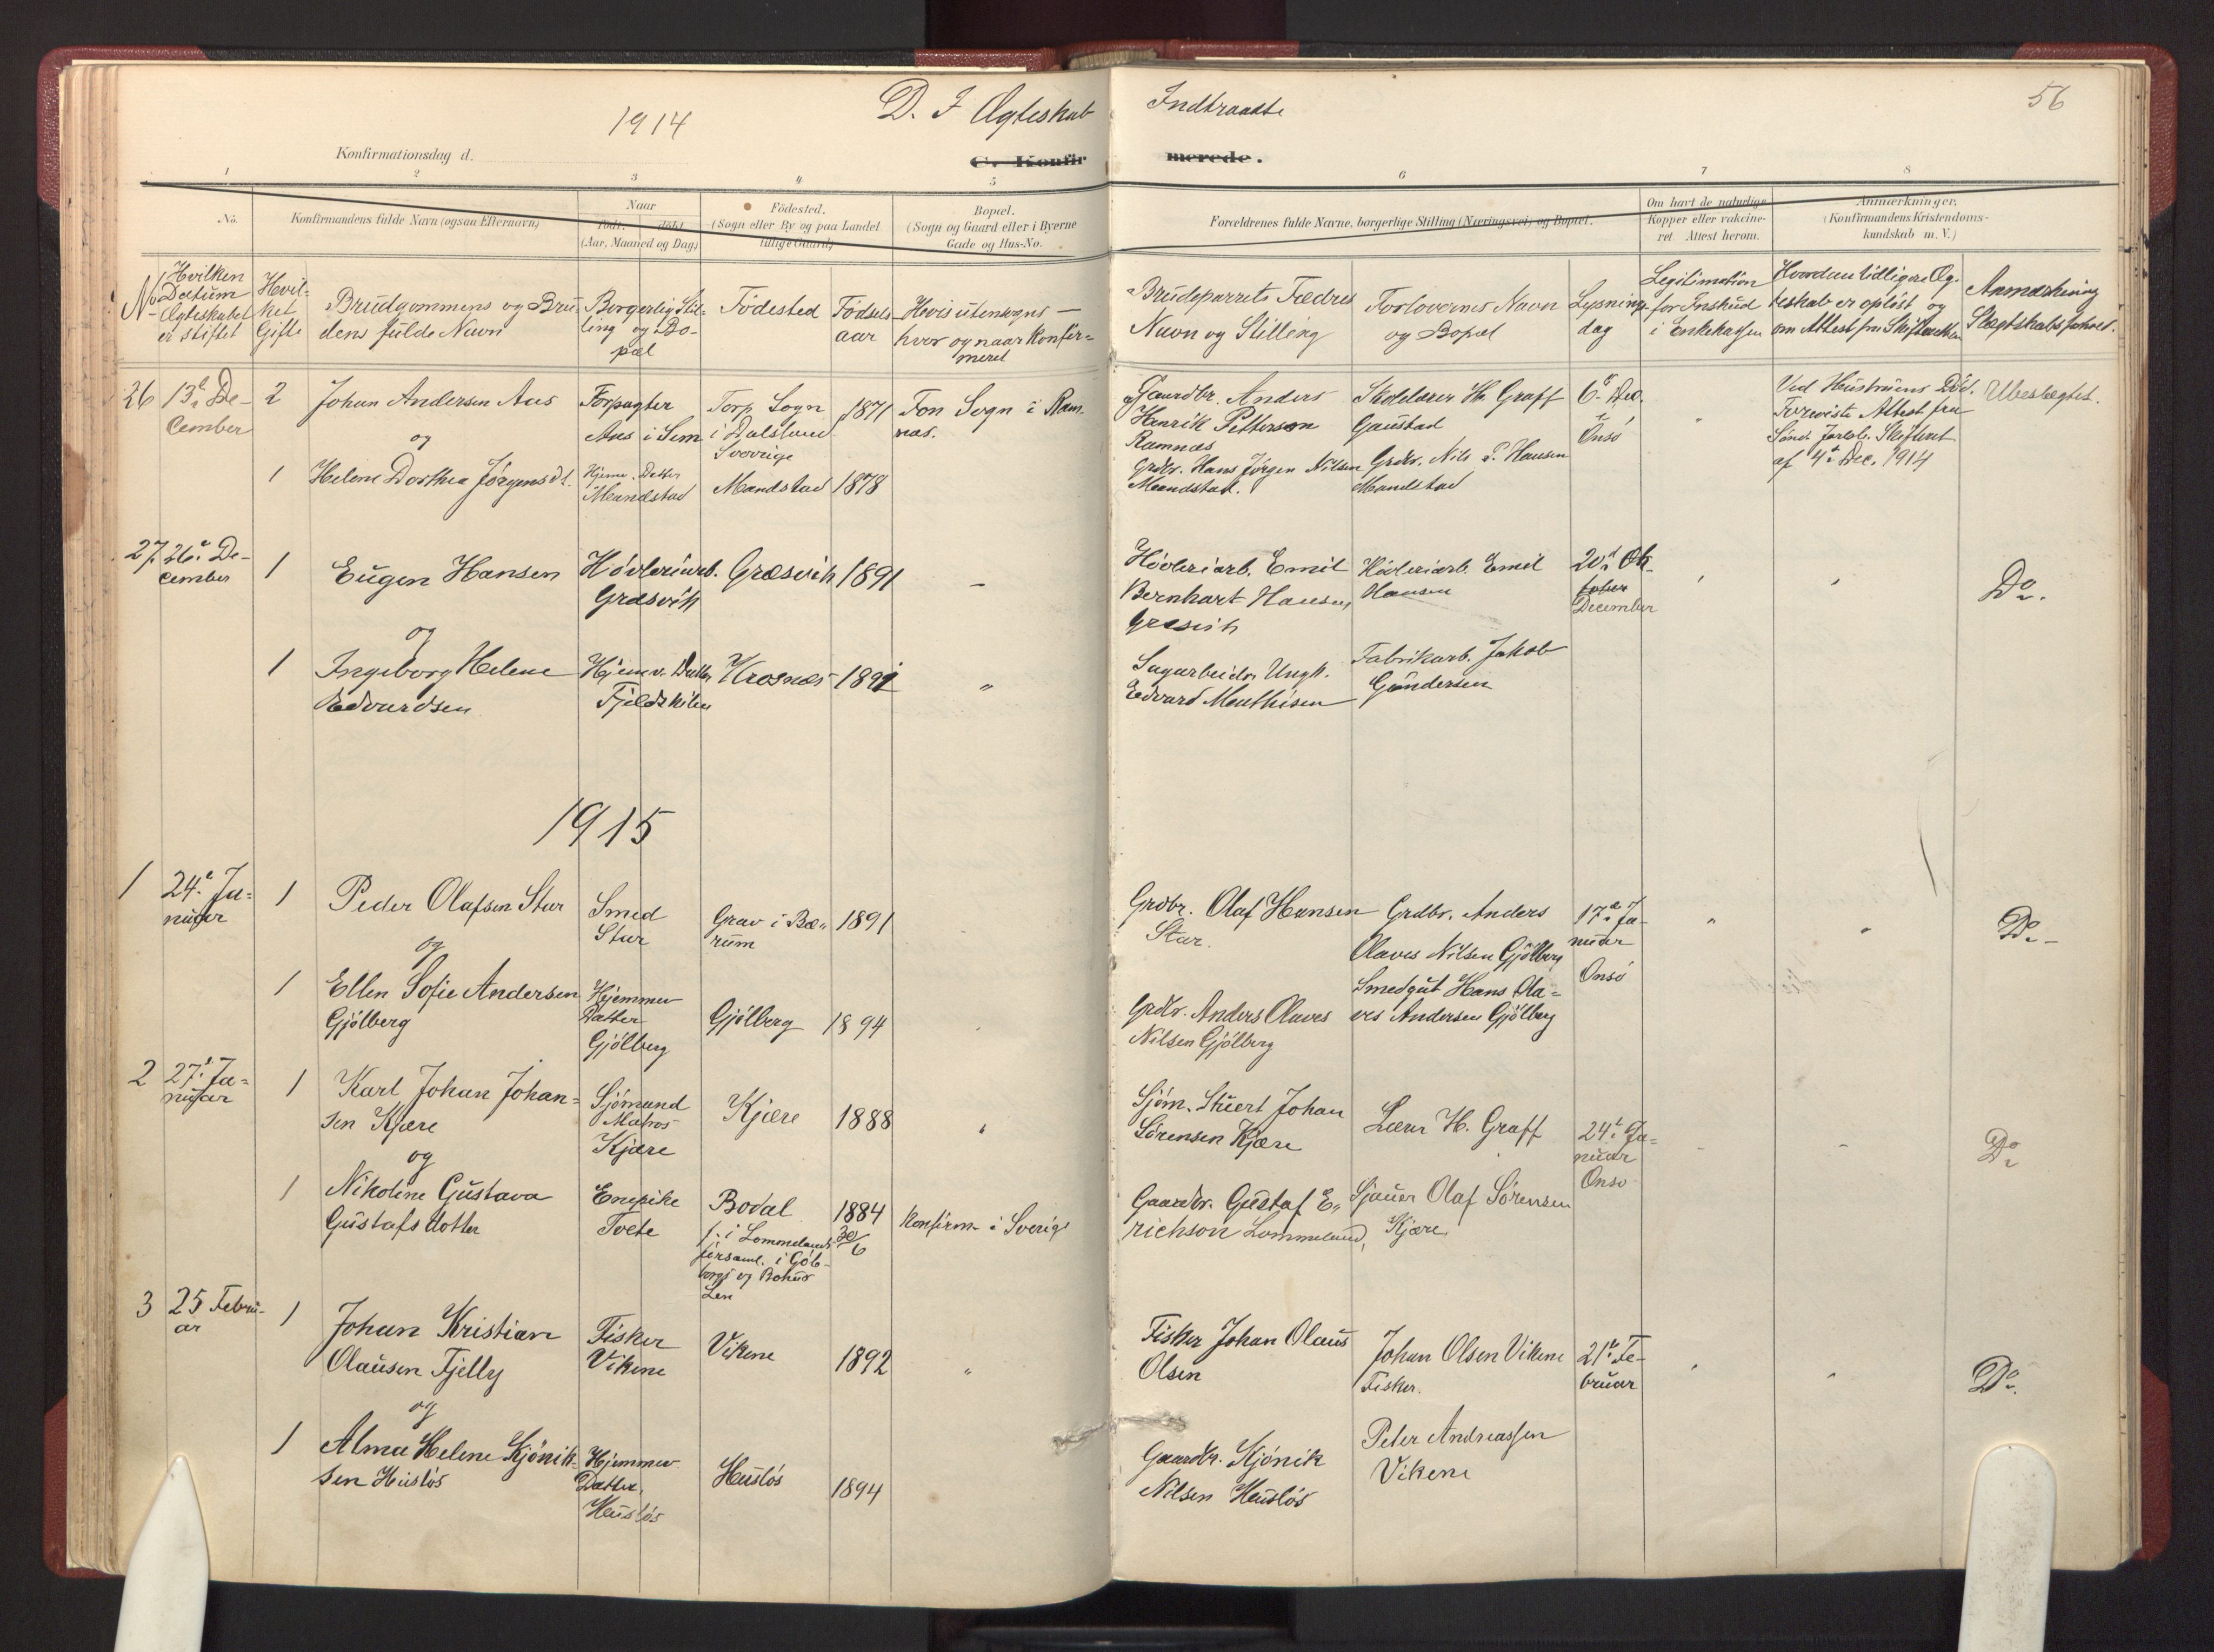 1914
D. I Ægteskab Indtraadte
56
Konfirmationsdag d.
C. Konfirmerede.
1 2 3 4 5 6 7 8
No.
Konfirmandens fulde Navn (ogsaa Efternavn)
Naar
født. døbt.
(Aar, Maaned og Dag)
Fødested.
(Sogn eller By og paa Landet
tillige Gaard)
Bopæl.
(Sogn og Gaard eller i Byerne
Gade og Hus-No.
Forældrenes fulde Navne, borgerlige Stilling (Næringsvei) og Bopæl.
Om havt de naturlige
Kopper eller vakcine-
ret. Attest herom.
Anmærkninger.
(Konfirmandens Kristendoms-
kundskab m. V.)
No
Hvilken
Datum
Ægteskabet
er stiftet
Hvil-
ket
Gifte
Brudgommens og Bru-
dens fulde Navn
Borgerlig Stil-
ling og Bo-
pæl
Fødested
Fødsels-
aar
Hvis utensogns —
hvor og naar konfir-
meret
Brudeparrets Fædres
Navn og Stilling
Forlovernes Navn
og Bopæl
Lysnings-
dag
Legitimation
for Inskud
i Enkekassen
Hvordan tidligere Æg-
teskab er opløst og
om Attest fra Skifteretten
Anmærkning
Slægtskabsforhold.
26 13de De-
cember
2
Johan Andersen Aas
og
Forpagter
Aas i Sem
Torp Sogn
i Dalsland
Sverrige
1871
Fon Sogn i Ram-
næs.
Gaardbr. Anders
Henrik Petterson
Ramnæs
Skolelærer H. Graff
Gaustad
6te Dec.
Onsø
"
Ved Hustruens Død.
Foreviste Attest fra
Sønd. Jarlsb. Skifteret
af 4de Dec. 1914
Ubeslægtet.
1
Helene Dorthea Jørgensdt.
Hjemv. Datter
Mandstad
Mandstad
1878
Grdbr. Hans Jørgen Nilsen
Mandstad.
Grdbr. Nils P. Hansen
Mandstad
27. 26de De-
cember
1
Eugen Hansen
og
Høvleriarb.
Græsvik
Græsvik
1891
—
Høvleriarb. Emil
Bernhart Hansen,
Græsvik
Høvleriarb. Emil
Hansen
20de Ok-
tober
December
"
"
Do.
1
Ingeborg Helene
Edvardsen
Hjemv. Datter
Fjeldskilen
Krosnæs
1891
"
Sagarbeider, Ungk.
Edvard Mathisen
Fabrikarb. Jakob
Gundersen
1915
1 24de Ja-
nuar
1
Peder Olafsen Stur
og
Smed
Stur
Grav i Bæ-
rum
1891
Grdbr. Olaf Hansen
Stur.
Grdbr. Anders
Olaves Nilsen Gjølberg
17de Ja-
nuar
Onsø
"
"
Do
1
Ellen Sofie Andersen
Gjølberg
Hjemmev
Datter
Gjølberg
Gjølberg
1894
Grdbr. Anders Olaves
Nilsen Gjølberg
Smedgut Hans Ola-
ves Andersen Gjølberg
2 27de Ja-
nuar
1
Karl Johan Johan-
sen Kjære
og
Sjømand
Matros
Kjære
Kjære
1888
"
Sjøm. Stuert Johan
Sørensen Kjære
Lærer H. Graff
24de Ja-
nuar
Onsø
Do
1
Nikoline Gustava
Gustafsdotter
Enepike
Tvete
Bodal
f. i Lommelands
församl. i Göte-
borgs og Bohus
Len
1884
30/6
Konfirm. i Sverige
Gaardbr. Gustaf E-
richson Lommeland,
Sjauer Olaf Sørensen
Kjære,
3 25 Febru-
ar
1
Johan Kristian
Olausen Fjelly
og
Fisker
Vikene
Vikene
1892
"
Fisker Johan Olaus
Olsen
Johan Olsen Vikene
Fisker.
21de Fe-
bruar
"
"
Do.
1
Alma Helene Kjønik-
sen Husløs
Hjemmev
Datter,
Husløs
Husløs
1894
Gaardbr. Kjønik
Nilsen Husløs
Peter Andreassen
Vikene